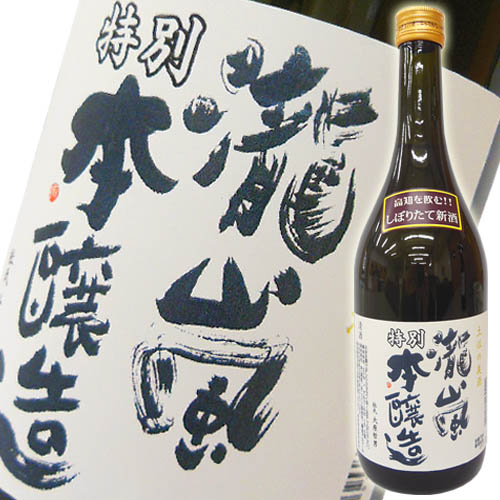 瀧嵐
特別
本醸造
高知を飲む!!
しぼりたて新酒
土佐の美酒
瀧嵐
特別
本醸造